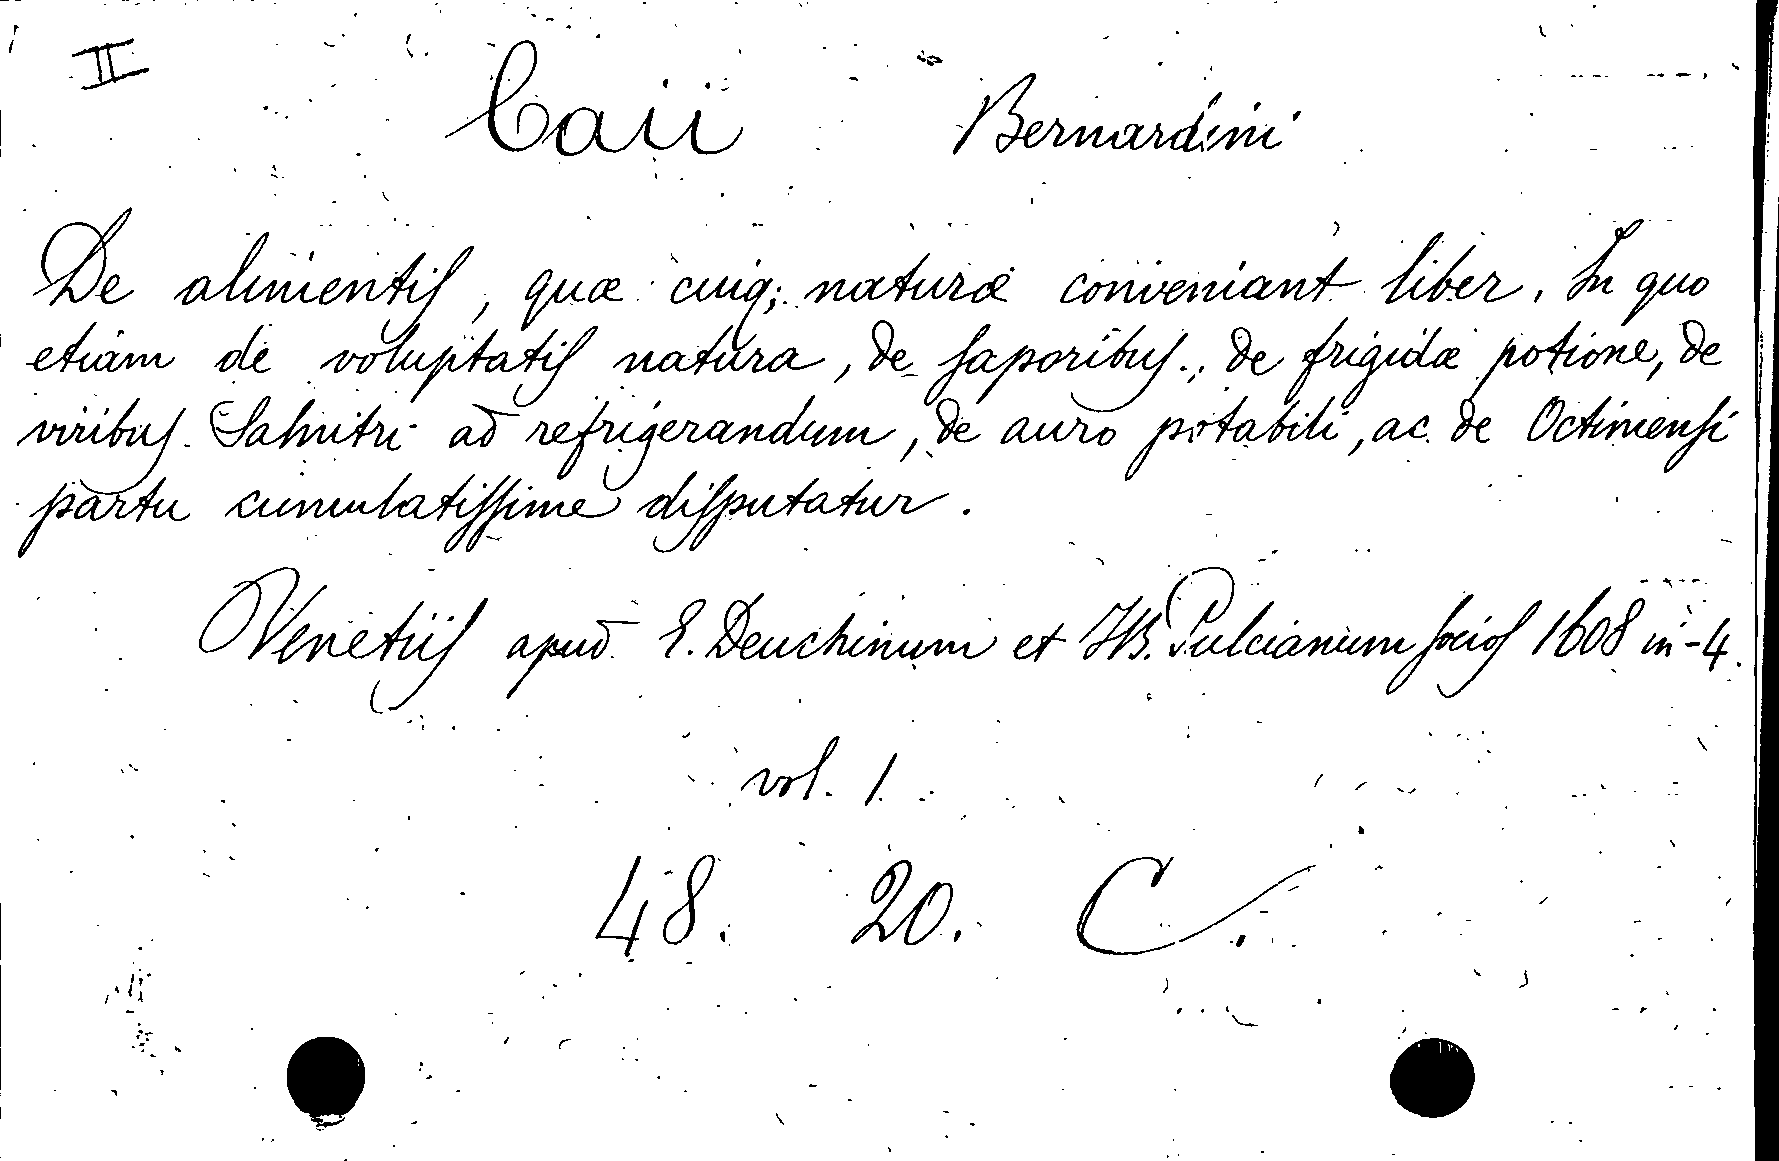 II
Caii Bernardini
De alimentis, quæ cuiq; naturæ conveniant liber. In quo
etiam de voluptatis natura, de saporibus, de frigidæ potione, de
viribus Salnitri ad refrigerandum, de auro potabili, ac de Octimensi
partu cumulatissime disputatur.
Venetiis apud E. Deuchinum et JB. Pulcianum socios 1608 in-4.
vol. 1.
48. 20. C.